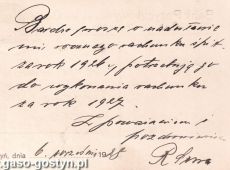 Bardzo proszę o nadesłanie
mi rocznego rachunku
za rok 1926, potrzebuję go
do wykonania rachunku
za rok 1927.
Z poważaniem i
pozdrowieniem
dnia 6. 19
gaso-gostyn.pl